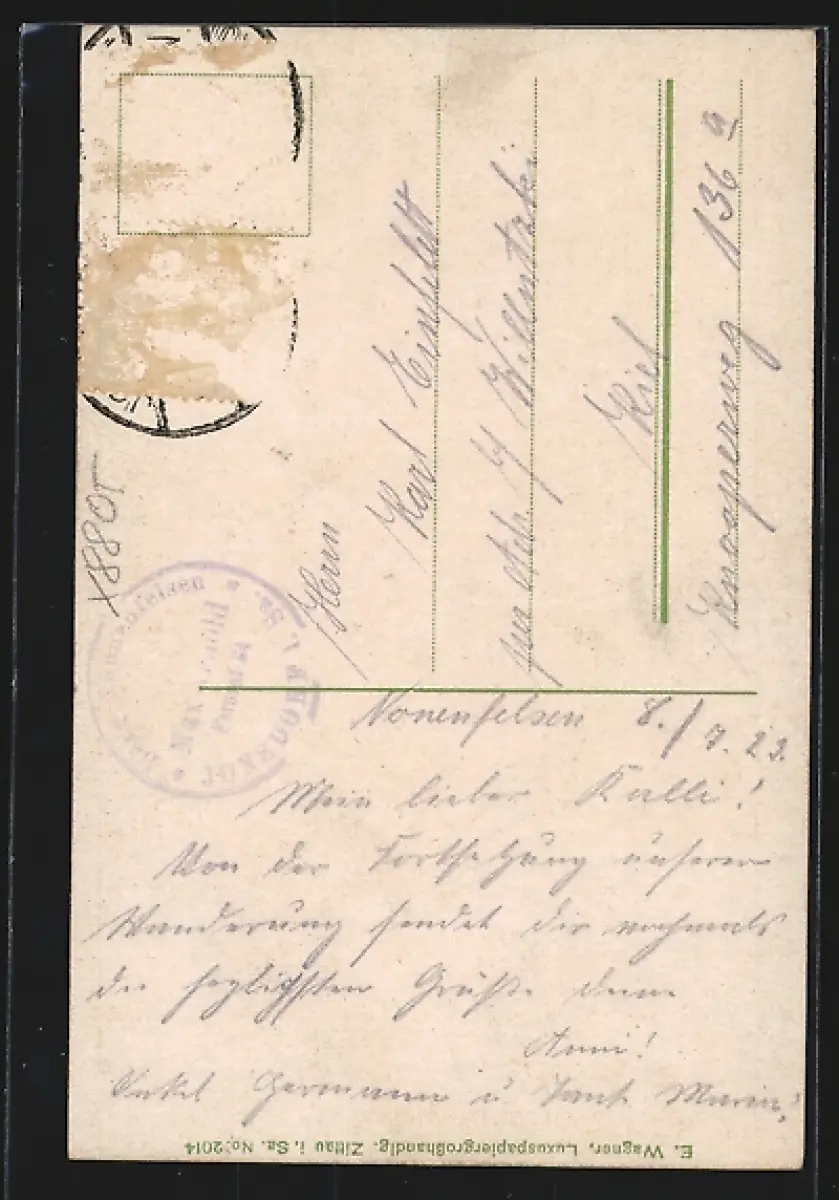 Herrn
Karl Einfeldt
per Adr.
Kiel
Knooperweg 136 a
Nonnenfelsen 8./7.23.
Mein lieber Kalli!
Von der Fortsetzung unserer
Wanderung sendet dir nochmals
die herzlichsten Grüße deine
Anni!
Onkel Hermann u Tante Marie!
JONSDORF i. Sa.
Max
E. Wagner, Luxuspapiergroßhandlg. Zittau i. Sa. No. 2014